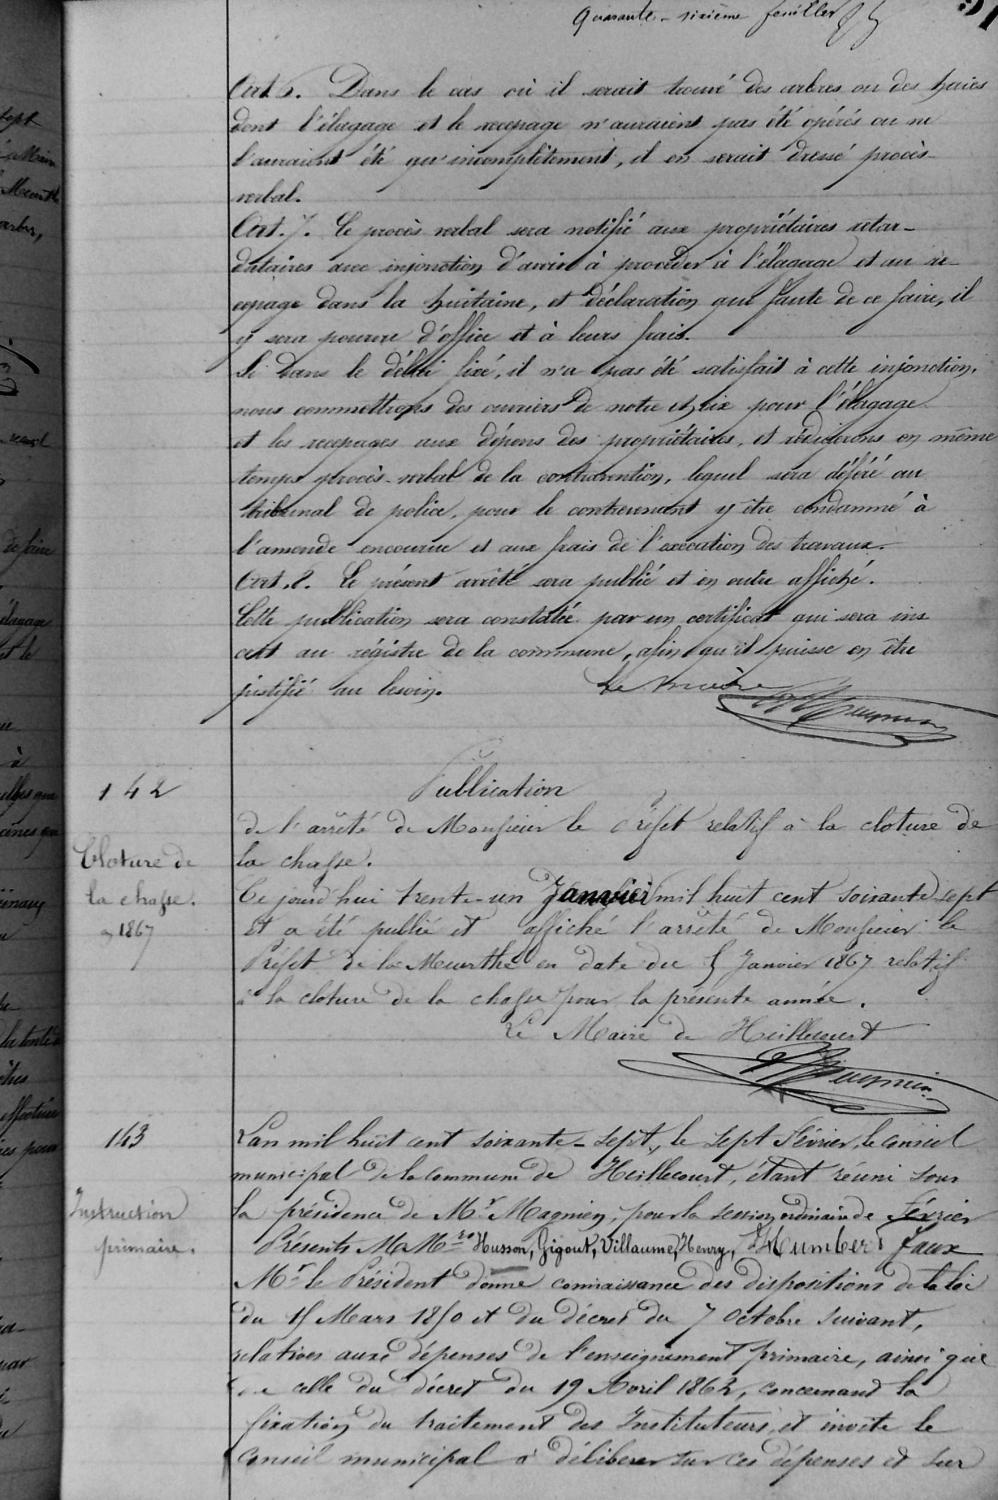 Quarante-sixième feuillet
91
Art. 6. Dans le cas où il serait trouvé des arbres ou des haies
dont l'élagage et le recepage n'auraient pas été opérés ou ne
l'auraient été qu'incomplètement, il en serait dressé procès-
verbal.
Art. 7. Le procès verbal sera notifié aux propriétaires retar-
dataires avec injonction d'avoir à procéder à l'élagage et au re-
cepage dans la huitaine, et déclaration que faute de ce faire, il
y sera pourvu d'office et à leurs frais.
Si dans le délai fixé, il n'a pas été satisfait à cette injonction,
nous commettrons des ouvriers de notre choix pour l'élagage
et les recepages aux dépens des propriétaires, et rédigerons en même
temps procès-verbal de la contravention, lequel sera déféré au
tribunal de police, pour le contrevenant y être condamné à
l'amende encourue et aux frais de l'exécution des travaux.
Art. 8. Le présent arrêté sera publié et en outre affiché.
Cette publication sera constatée par un certificat qui sera ins
crit au régistre de la commune, afin qu'il puisse en être
justifié au besoin. Le Maire
Magnien
142
Publication
de l'arrêté de Monsieur le Préfet relatif à la cloture de
la chasse.
Cloture de
la chasse.
1867
Ce jourd'hui trente-un Janvier mil huit cent soixante-sept
Et a été publié et affiché l'arrêté de Monsieur le
Préfet de la Meurthe en date du 5 Janvier 1867 relatif
à la cloture de la chasse pour la présente année.
Le Maire de Heillecourt
Magnien
143
Instruction
primaire.
L'an mil huit cent soixante-sept, le sept Février, le conseil
municipal de la commune de Heillecourt, étant réuni sous
la présidence de Mr Magnien, pour la session ordinaire de Février
Présents MM rs Husson, Gigout, Villaume, Henry, Humbert Jaux
Mr le Président donne connaissance des dispositions de la loi
du 15 Mars 1850 et du décret du 7 Octobre suivant,
relatives aux dépenses de l'enseignement primaire, ainsi que
de celle du décret du 19 Avril 1862, concernant la
fixation du traitement des Instituteurs, et invite le
Conseil municipal à délibérer sur ces dépenses et sur